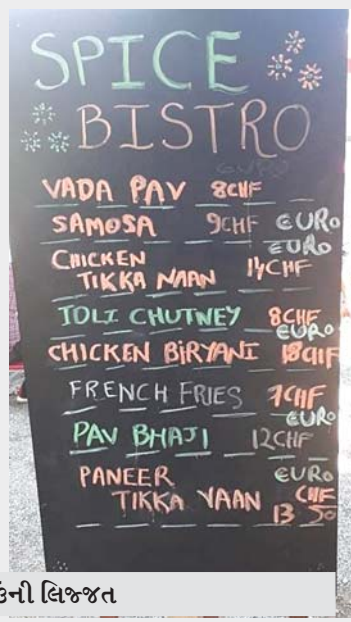 SPICE
BISTRO
EURO
VADA PAV 8CHF
SAMOSA 9CHF EURO
EURO
CHICKEN
TIKKA NAAN 14CHF
JOLI CHUTNEY 8CHF
EURO
CHICKEN BIRYANI 18CHF
FRENCH FRIES 7CHF
EURO
PAV BHAJI 12CHF
PANEER EURO
TIKKA NAAN CHF
13 50
લિજ્જત